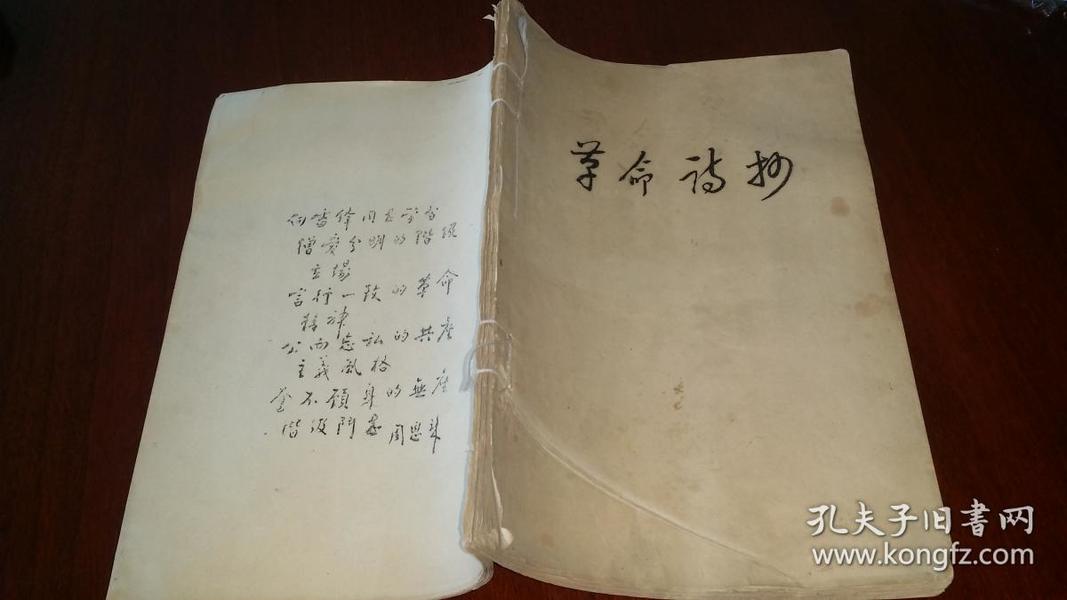 革命诗抄
向雷锋同志学习
憎爱分明的階级
立場
言行一致的革命
精神
公而忘私的共産
主義风格
奋不顧身的無産
階级鬥志 周恩来
孔夫子旧書网
www.kongfz.com